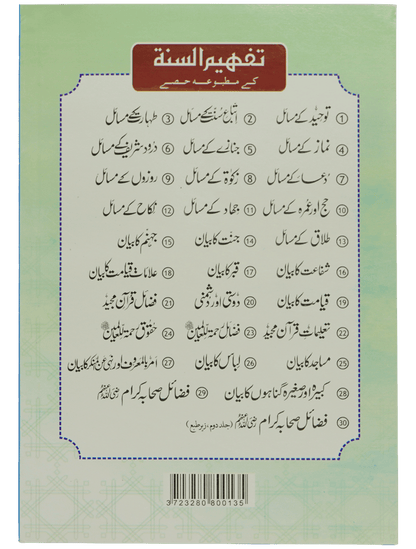 تفہیم السنۃ
کے مطبوعہ حصے
① توحید کے مسائل ② اتباع سنت کے مسائل ③ طہارت کے مسائل
④ نماز کے مسائل ⑤ جنازے کے مسائل ⑥ درود شریف کے مسائل
⑦ دعا کے مسائل ⑧ زکوٰۃ کے مسائل ⑨ روزوں کے مسائل
⑩ حج اور عمرہ کے مسائل ⑪ جہاد کے مسائل ⑫ نکاح کے مسائل
⑬ طلاق کے مسائل ⑭ جنت کا بیان ⑮ جہنم کا بیان
⑯ شفاعت کا بیان ⑰ قبر کا بیان ⑱ علامات قیامت کا بیان
⑲ قیامت کا بیان ⑳ دوستی اور دشمنی ㉑ فضائل قرآن مجید
㉒ تعلیمات قرآن مجید ㉓ فضائل رحمۃ للعالمین ﷺ ㉔ حقوق رحمۃ للعالمین ﷺ
㉕ مساجد کا بیان ㉖ لباس کا بیان ㉗ امر بالمعروف اور نہی عن المنکر کا بیان
㉘ کبیرہ اور صغیرہ گناہوں کا بیان ㉙ فضائل صحابہ کرام رضی اللہ عنہم
㉚ فضائل صحابہ کرام رضی اللہ عنہم (جلد دوم، زیر طبع)
3723280800135